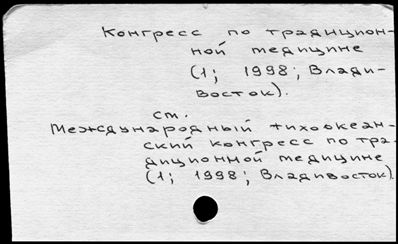 Конгресс по традицион-
ной медицине
(1; 1998; Влади-
восток).
см.
Международный тихоокеан-
ский конгресс по тра-
диционной медицине
(1; 1998; Владивосток).